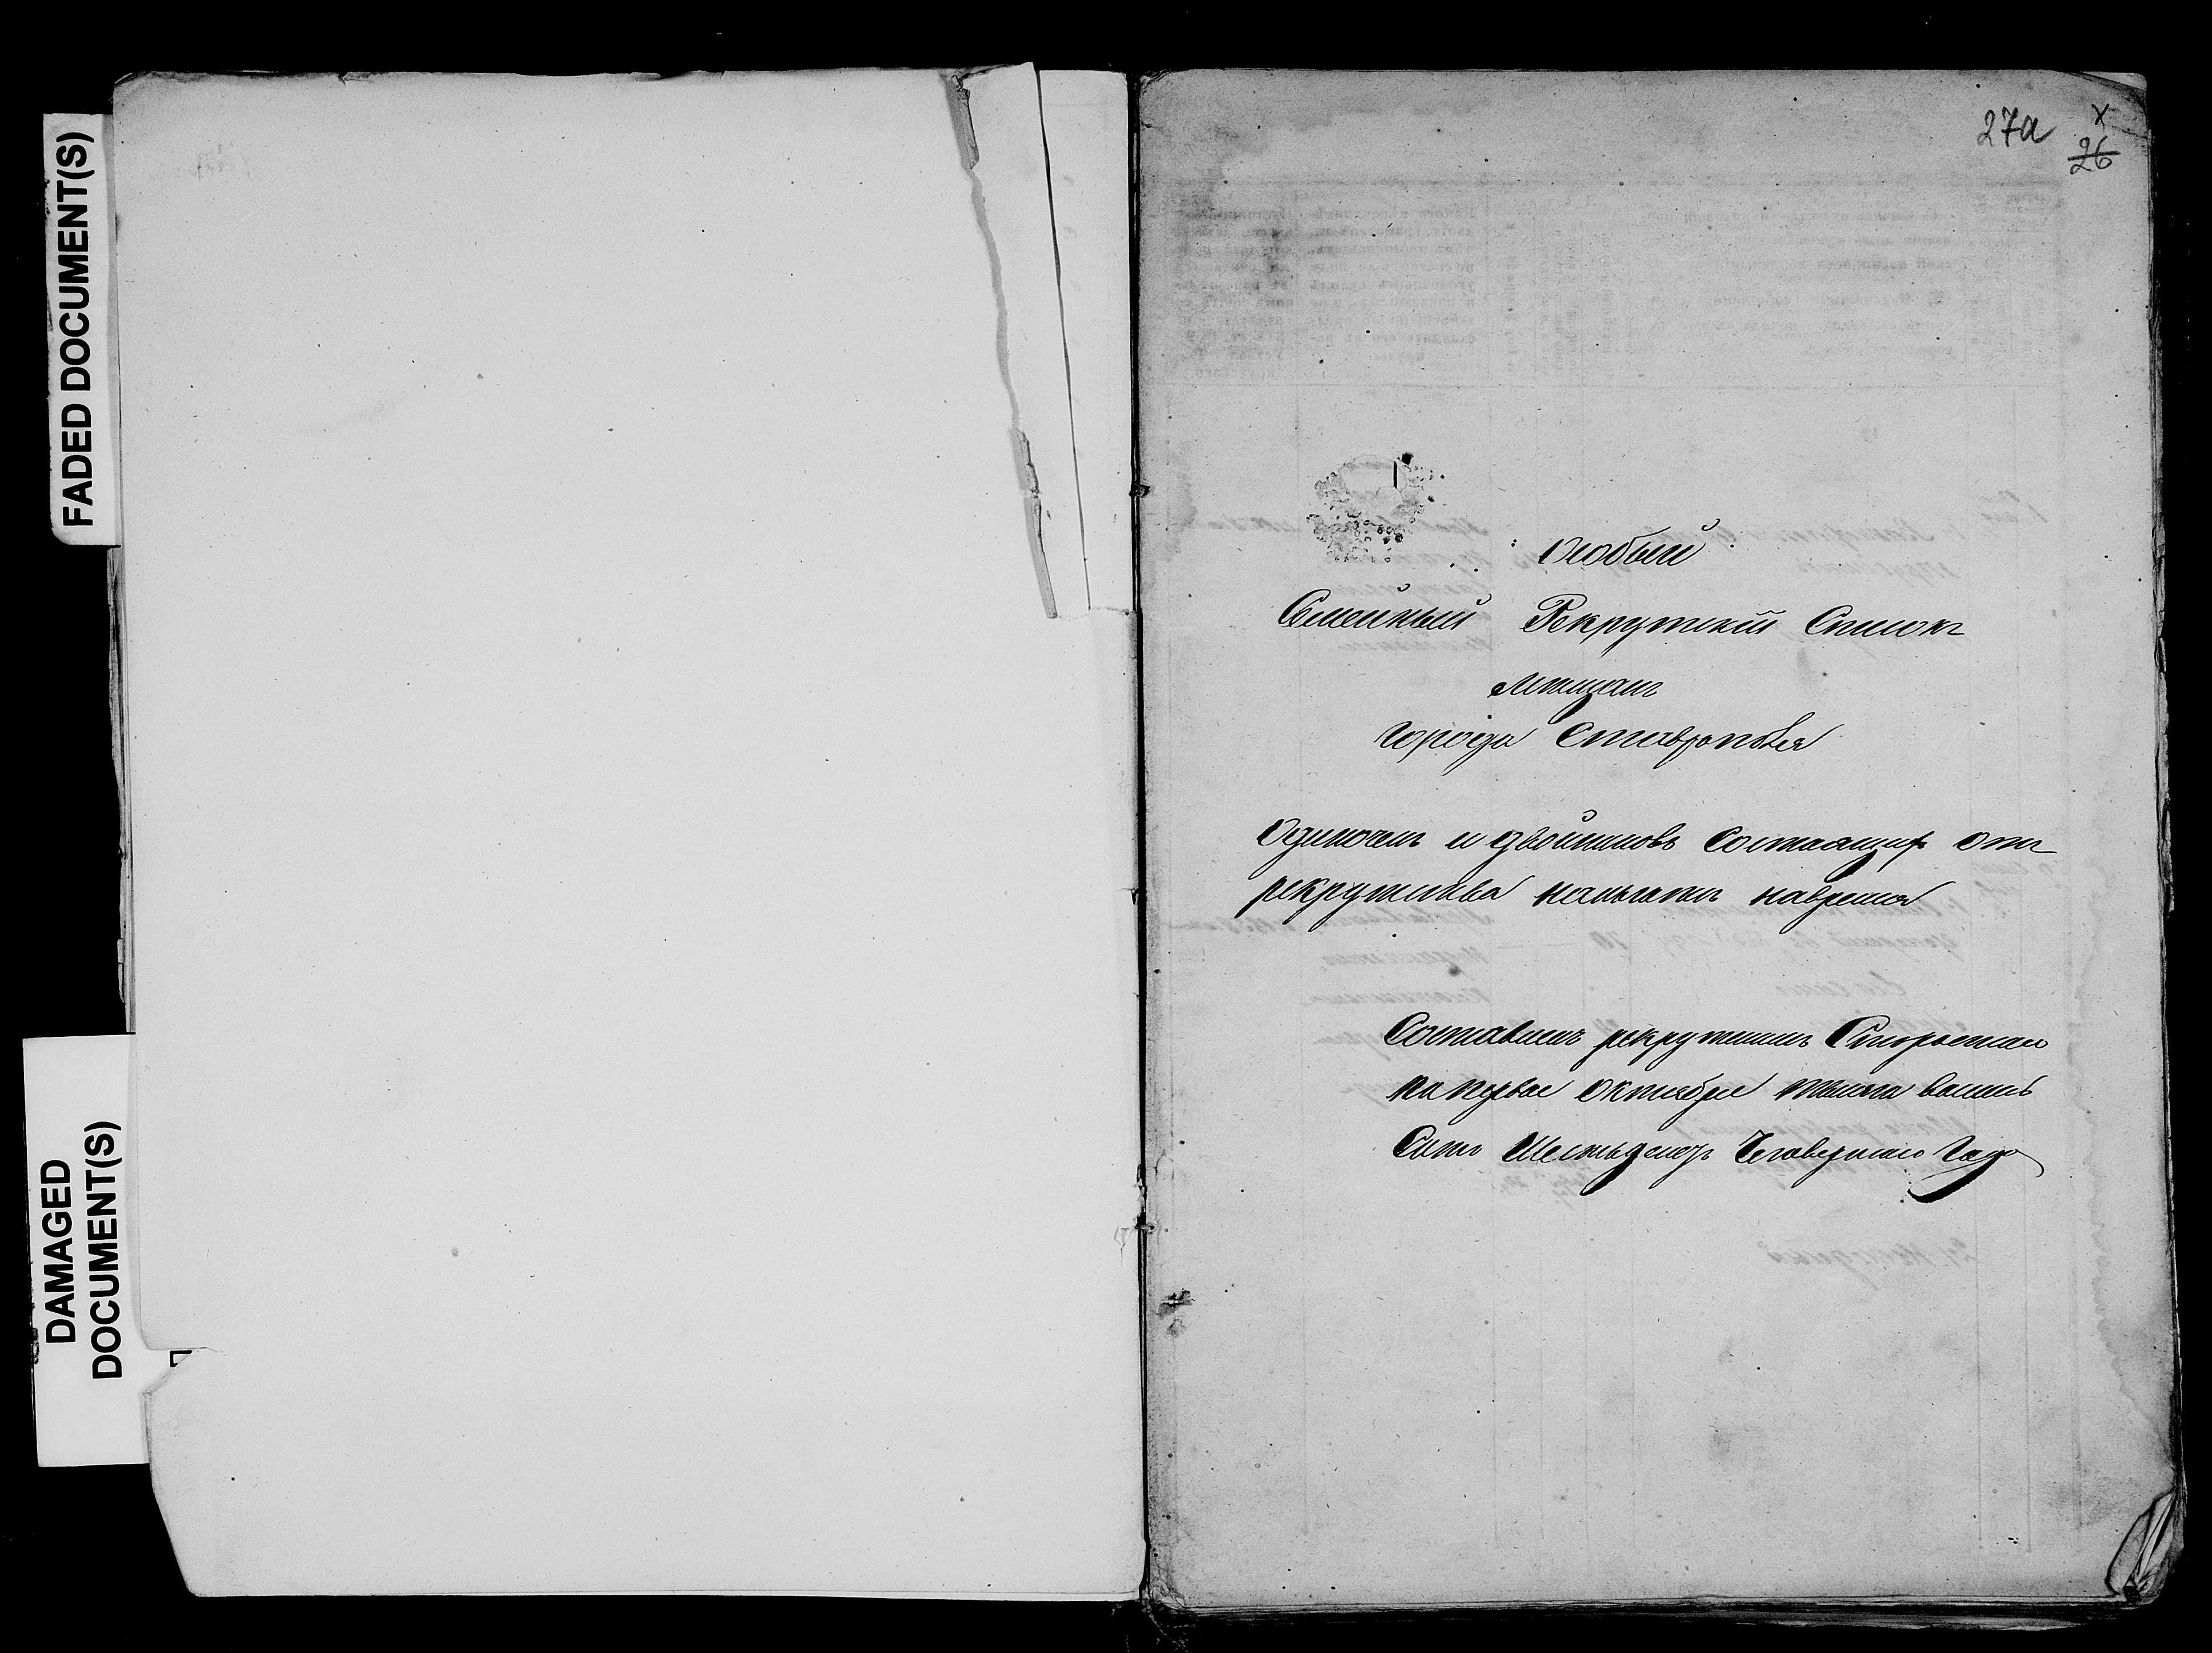 FADED DOCUMENT(S)
DAMAGED
DOCUMENT(S)
27а
26
Особый
Семейный Рекрутскій Списокъ
Мещанъ
города Ставрополя
Одиночекъ и двойниковъ состоящихъ отъ
рекрутства на время
Составленъ рекрутскимъ
на первое Октября тысяча восемь
Сотъ Шестьдесятъ Четвертаго Года